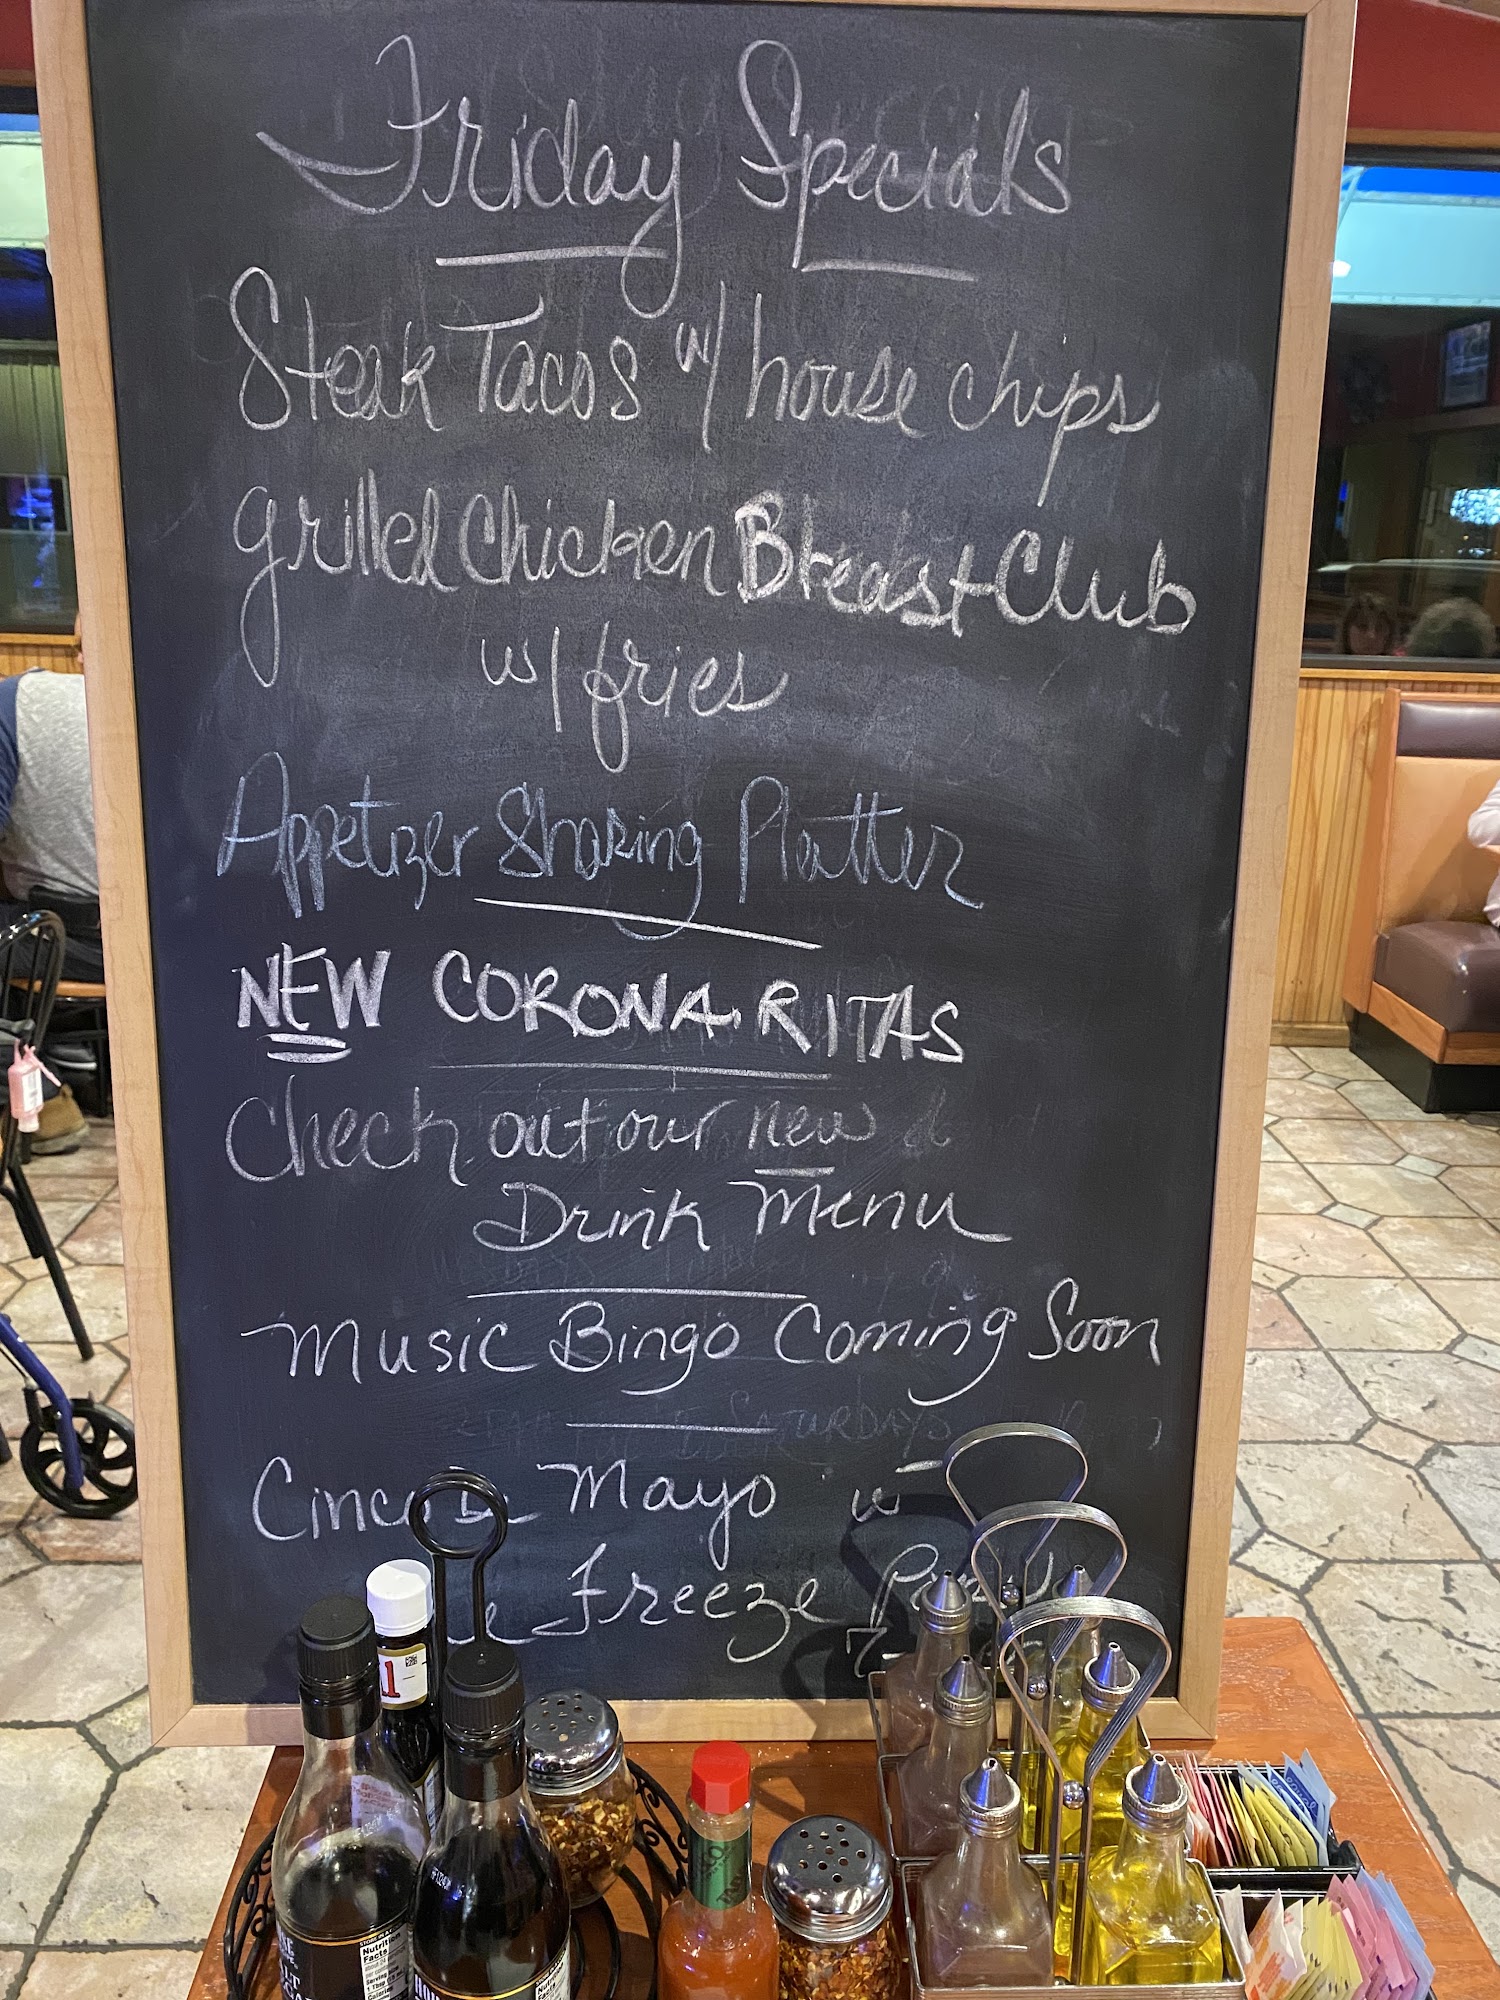 Friday Specials
Steak Tacos w/ house chips
grilled Chicken Breast Club
w/ fries
Appetzer Sharing Platter
NEW CORONA.RITAS
Check out our new
Drink Menu
Music Bingo Coming Soon
SATURDAYS
Cinco Mayo
Freeze
Nutrition
Facts